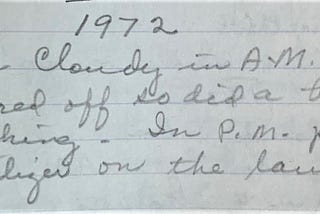 1972
- Cloudy in A.M.
red off so did a
hing - In P.M.
lizer on the law